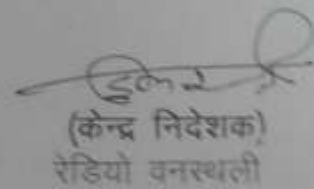 (केन्द्र निदेशक)
रेडियो वनस्थली